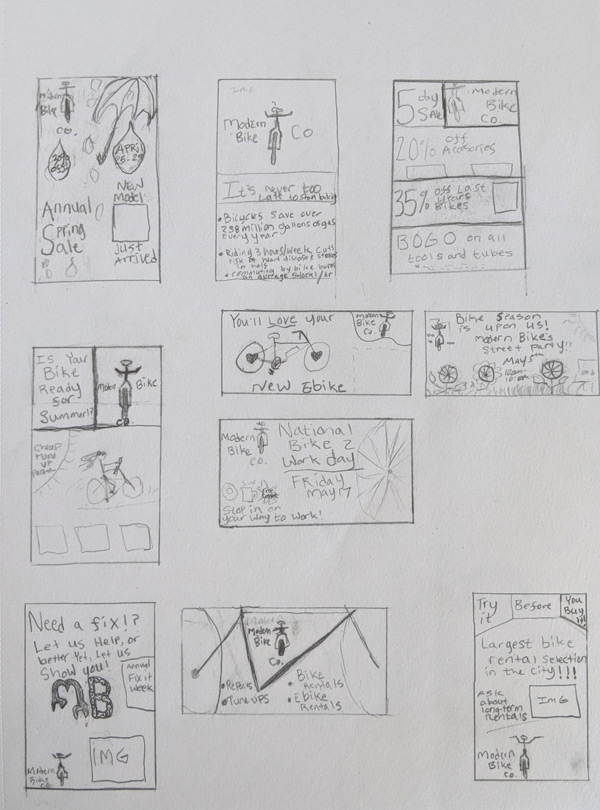 Modern
Bike
Co.
20%
off!
APRIL
25-29
NEW
Model
Just
Arrived
Annual
Spring
Sale
Img
Modern
Bike
Co
It's never too
Late to start biking
• Bicycles save over
238 million gallons of gas
Every year
• Riding 3 hours/week cuts
risk of heart disease & stroke
in half
• Commuting by bike burns
5 day
Sale
Modern
Bike
Co.
20% off
Accesories
35% off Last
Years
Bikes
BOGO on all
tools and tubes
You'll Love your
New Ebike
Modern
Bike
Co.
Bike Season
is upon us!
Modern Bike's
Street Party!!
May 5th
Is Your
Bike
Ready
for
Summer!?
Modern Bike
Co
Cheap
tune
up
Modern
Bike
Co.
National
Bike 2
Work day
Friday
May 17
Stop in on
your way to work!
Need a fix!?
Let us help, or
better yet, Let us
Show you!
MB
Annual
Fix it
week
IMG
Modern
Bike
Co.
Modern
Bike
Co.
• Repairs
• Tune ups
• Bike
Rentals
• Ebike
Rentals
Try
it
Before
You
Buy
it!
Largest bike
rental selection
in the city!!!
Ask
about
long-term
Rentals
IMG
Modern
Bike
Co.